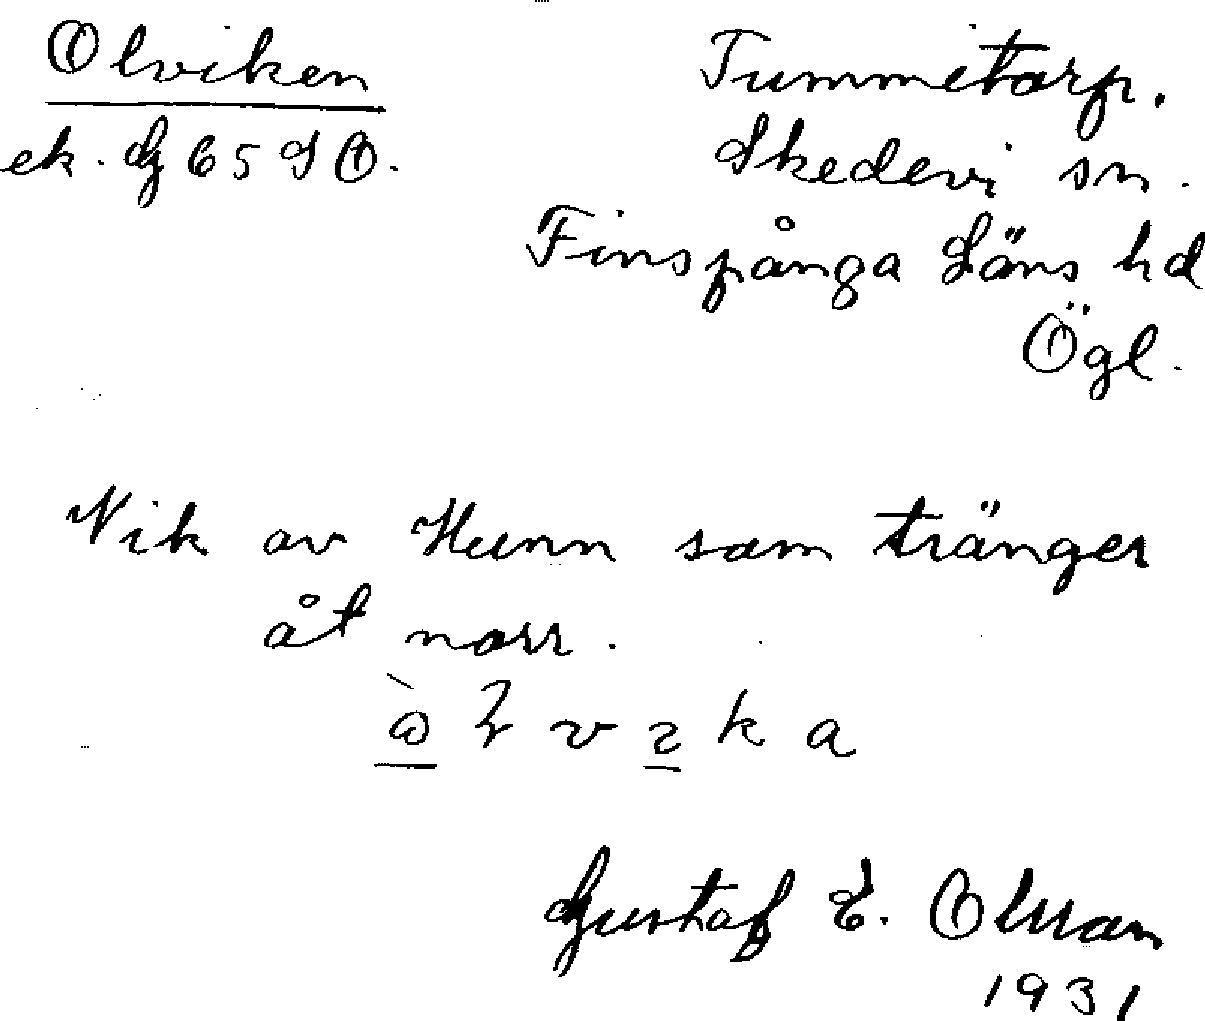 Olviken
ek. G 65 SO.
Tummetorp.
Skedevi sn.
Finspånga Läns hd
Ögl.
Vik av Hunn som tränger
åt norr.
Gustaf E. Olman
1931